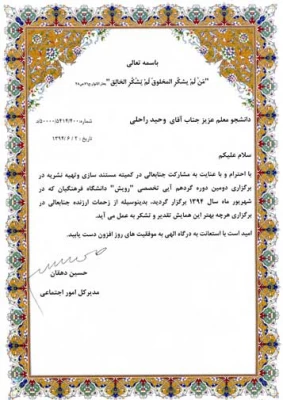 باسمه تعالی
"مَن لَم یَشکُرِ المَخلوق لَم یَشکُرِ الخالِق"
دانشجو معلم عزیز جناب آقای وحید راحلی
شماره: ۵۰۰۰۰/۵۴۱۹/۴۰۰/د
تاریخ: ۱۳۹۴/۶/۳۰
سلام علیکم
با احترام و با عنایت به مشارکت جنابعالی در کمیته مستند سازی وتهیه نشریه در
برگزاری دومین دوره گردهم آیی تخصصی "رویش" دانشگاه فرهنگیان که در
شهریور ماه سال ۱۳۹۴ برگزار گردید، بدینوسیله از زحمات ارزنده جنابعالی در
برگزاری هرچه بهتر این همایش تقدیر و تشکر به عمل می آید.
امید است با استعانت به درگاه الهی به موفقیت های روز افزون دست یابید.
حسین دهقان
مدیرکل امور اجتماعی